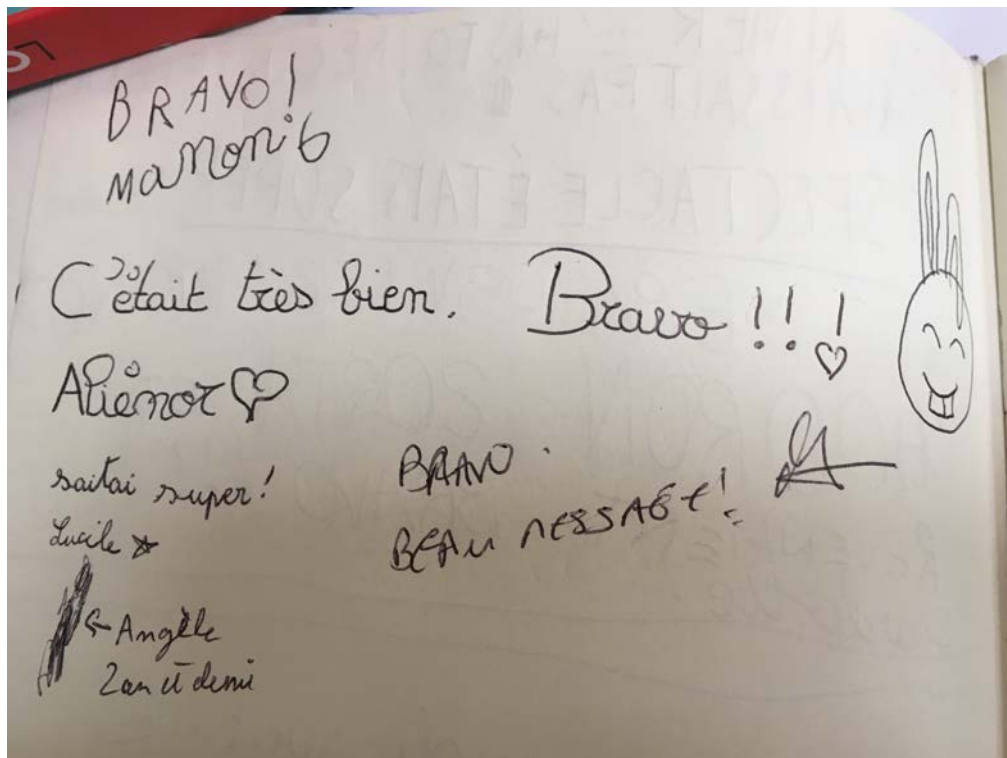 BRAVO!
maNon 6
C'était très bien.
Bravo!!!
Aliénor
saitai super!
Lucile
BRAVO.
BEAU MESSAGE!
Angèle
2 an et demi